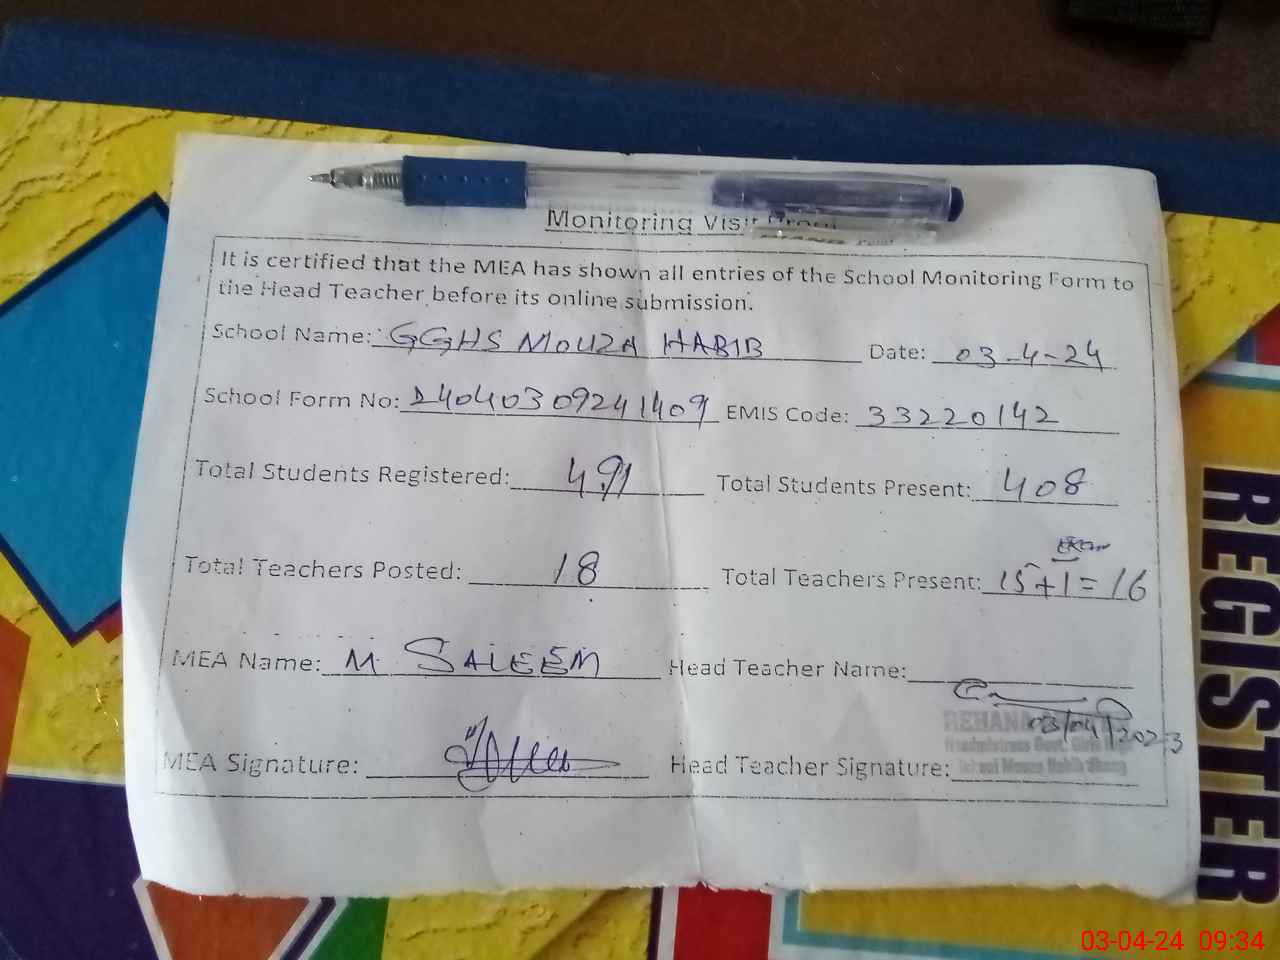 Monitoring Visit Proof
It is certified that the MEA has shown all entries of the School Monitoring Form to
the Head Teacher before its online submission.
School Name: GGHS MOUZA HABIB Date: 03-4-24
School Form No: D4040309241409 EMIS Code: 33220142
Total Students Registered: 491 Total Students Present: 408
Total Teachers Posted: 18 Total Teachers Present: 15+1=16
MEA Name: M SALEEM Head Teacher Name:
REHANA 03/04/2023
Headmistress Govt. Girls
MEA Signature: Head Teacher Signature:
School Mouza Habib Jhang
REGISTER
03-04-24 09:34